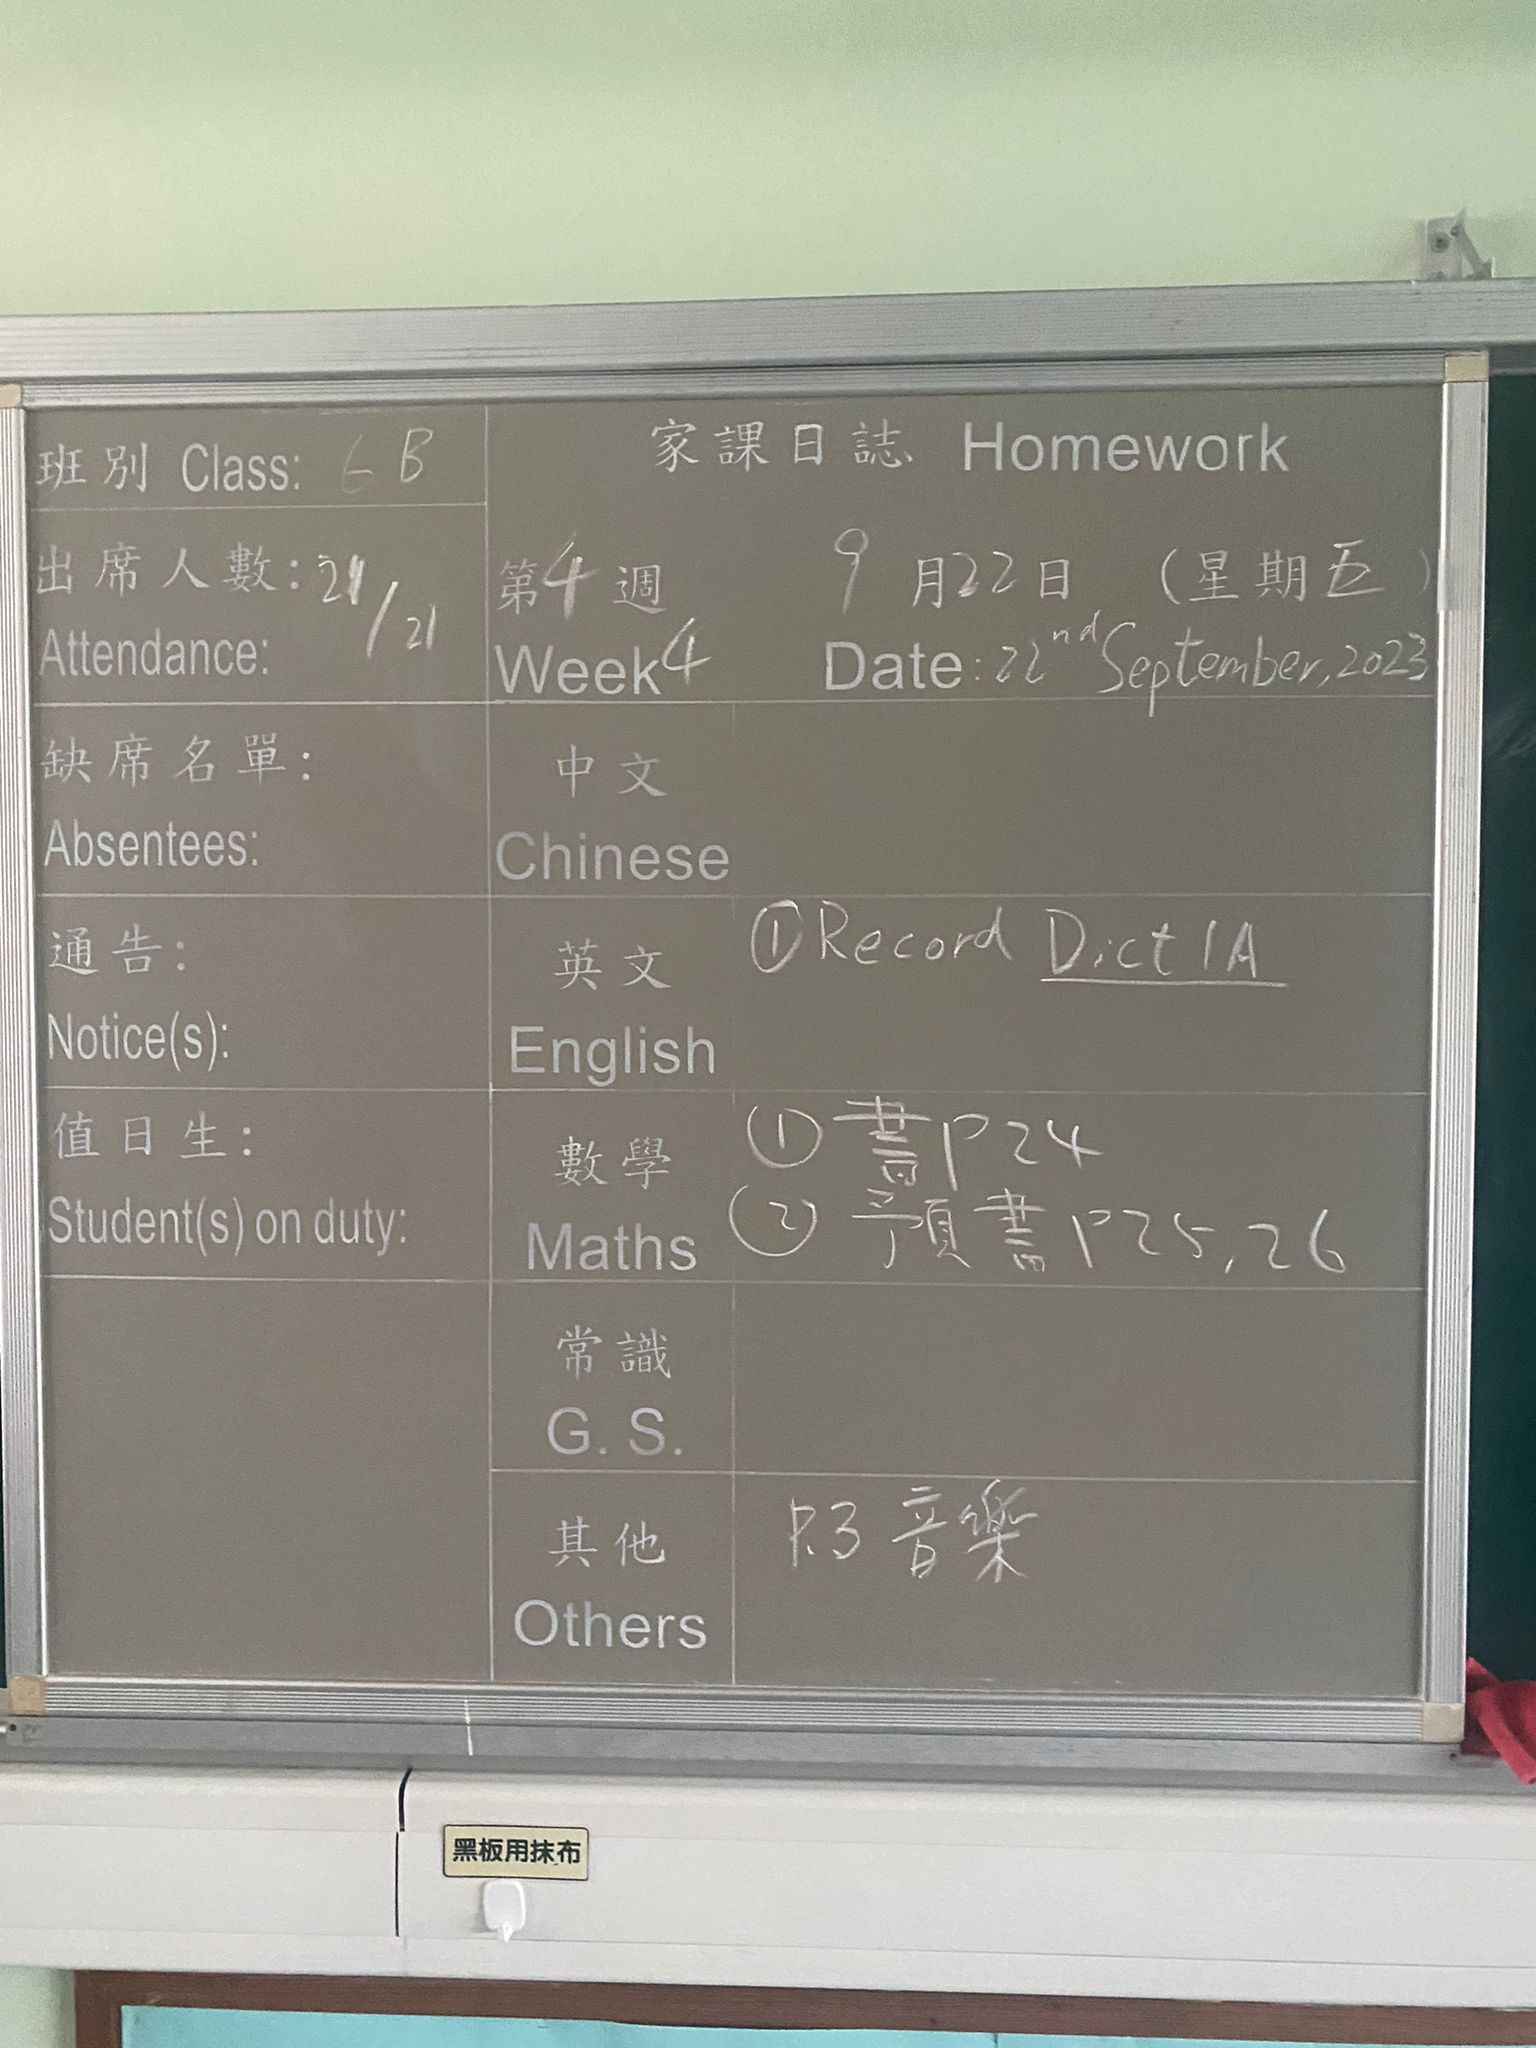 班別 Class: 6B
家課日誌 Homework
出席人數: 21/21
Attendance:
第4週 9月22日 (星期五)
Week4 Date: 22nd September, 2023
缺席名單:
Absentees:
中文
Chinese
通告:
Notice(s):
英文
English
① Record Dict 1A
值日生:
Student(s) on duty:
數學
Maths
① 書P24
② 預書P25, 26
常識
G. S.
其他
Others
P.3 音樂
黑板用抹布